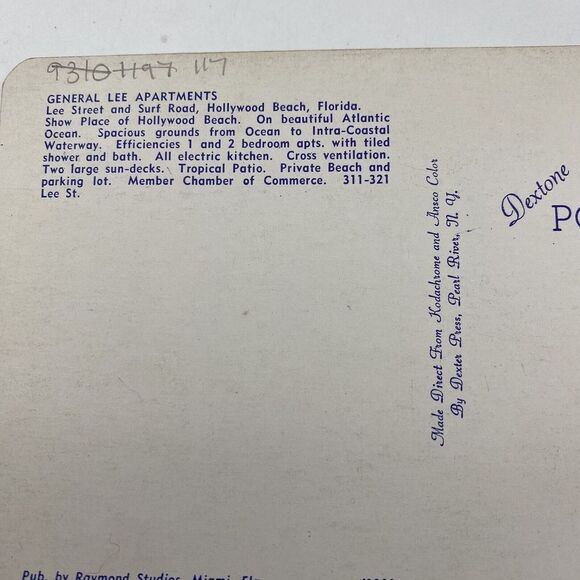 9310-1197 117
GENERAL LEE APARTMENTS
Lee Street and Surf Road, Hollywood Beach, Florida.
Show Place of Hollywood Beach. On beautiful Atlantic
Ocean. Spacious grounds from Ocean to Intra-Coastal
Waterway. Efficiencies 1 and 2 bedroom apts. with tiled
shower and bath. All electric kitchen. Cross ventilation.
Two large sun-decks. Tropical Patio. Private Beach and
parking lot. Member Chamber of Commerce. 311-321
Lee St.
Made Direct From Kodachrome and Ansco Color
By Dexter Press, Pearl River, N. Y.
Dextone
PO
Pub. by Raymond Studios, Miami, Fla.